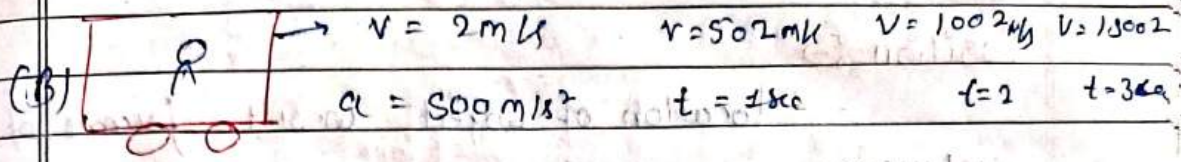 → V = 2m/s v=502m/s V= 1002m/s V=15002
(B) a = 500m/s² t = 1sec t=2 t=3sec